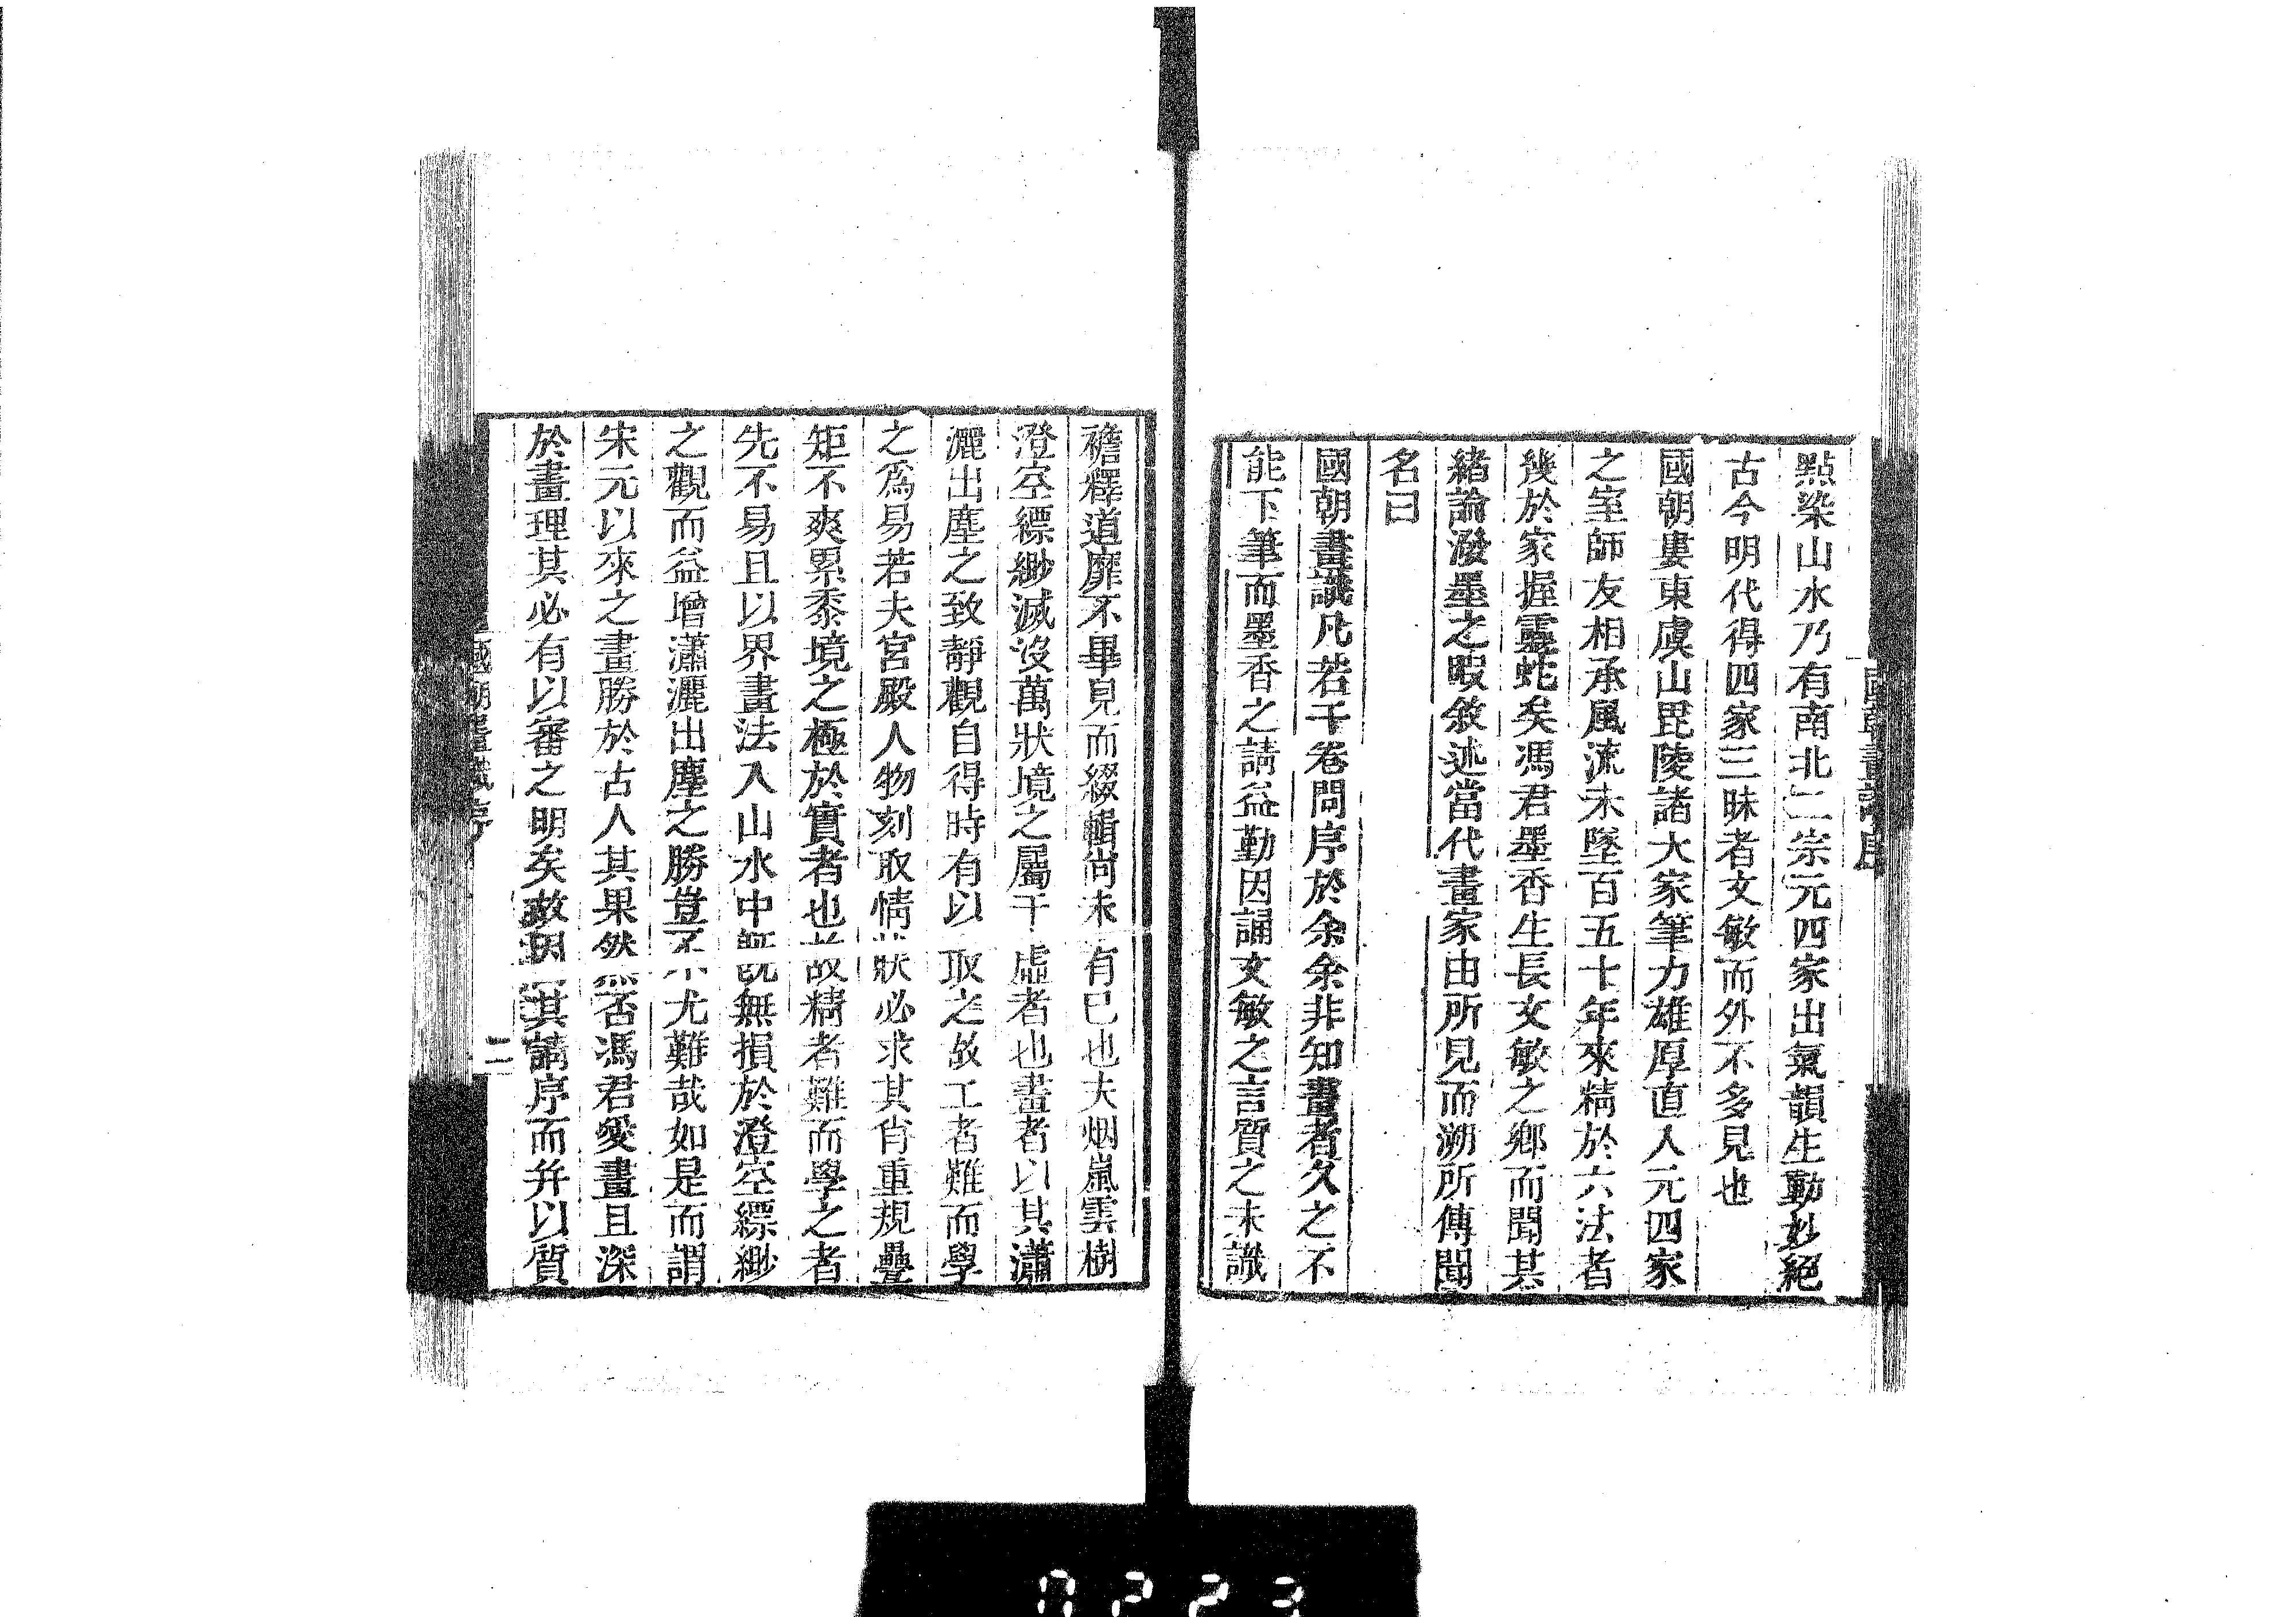 點染山水乃有南北二宗元四家出氣韻生動妙絕
古今明代得四家三昧者文敏而外不多見也
國朝婁東虞山毘陵諸大家筆力雄厚直入元四家
之室師友相承風流未墜百五十年來精於六法者
幾於家握靈蛇矣馮君墨香生長文敏之鄉而聞其
緒論潑墨之暇敘述當代畫家由所見而溯所傳聞
名曰
國朝畫識凡若干卷問序於余余非知畫者久之不
能下筆而墨香之請益勤因誦文敏之言質之未識
國朝畫識序
襜釋道靡不畢見而綴輯尚未有已也夫烟嵐雲樹
澄空縹緲滅沒萬狀境之屬于虛者也畫者以其瀟
灑出塵之致靜觀自得時有以取之故工者難而學
之爲易若夫宮殿人物刻取情狀必求其肖重規疊
矩不爽累黍境之極於實者也故精者難而學之者
先不易且以界畫法入山水中既無損於澄空縹緲
之觀而益增瀟灑出塵之勝豈不尤難哉如是而謂
宋元以來之畫勝於古人其果然否馮君愛畫且深
於畫理其必有以審之明矣故因其請序而并以質
國朝畫識序
二
0223